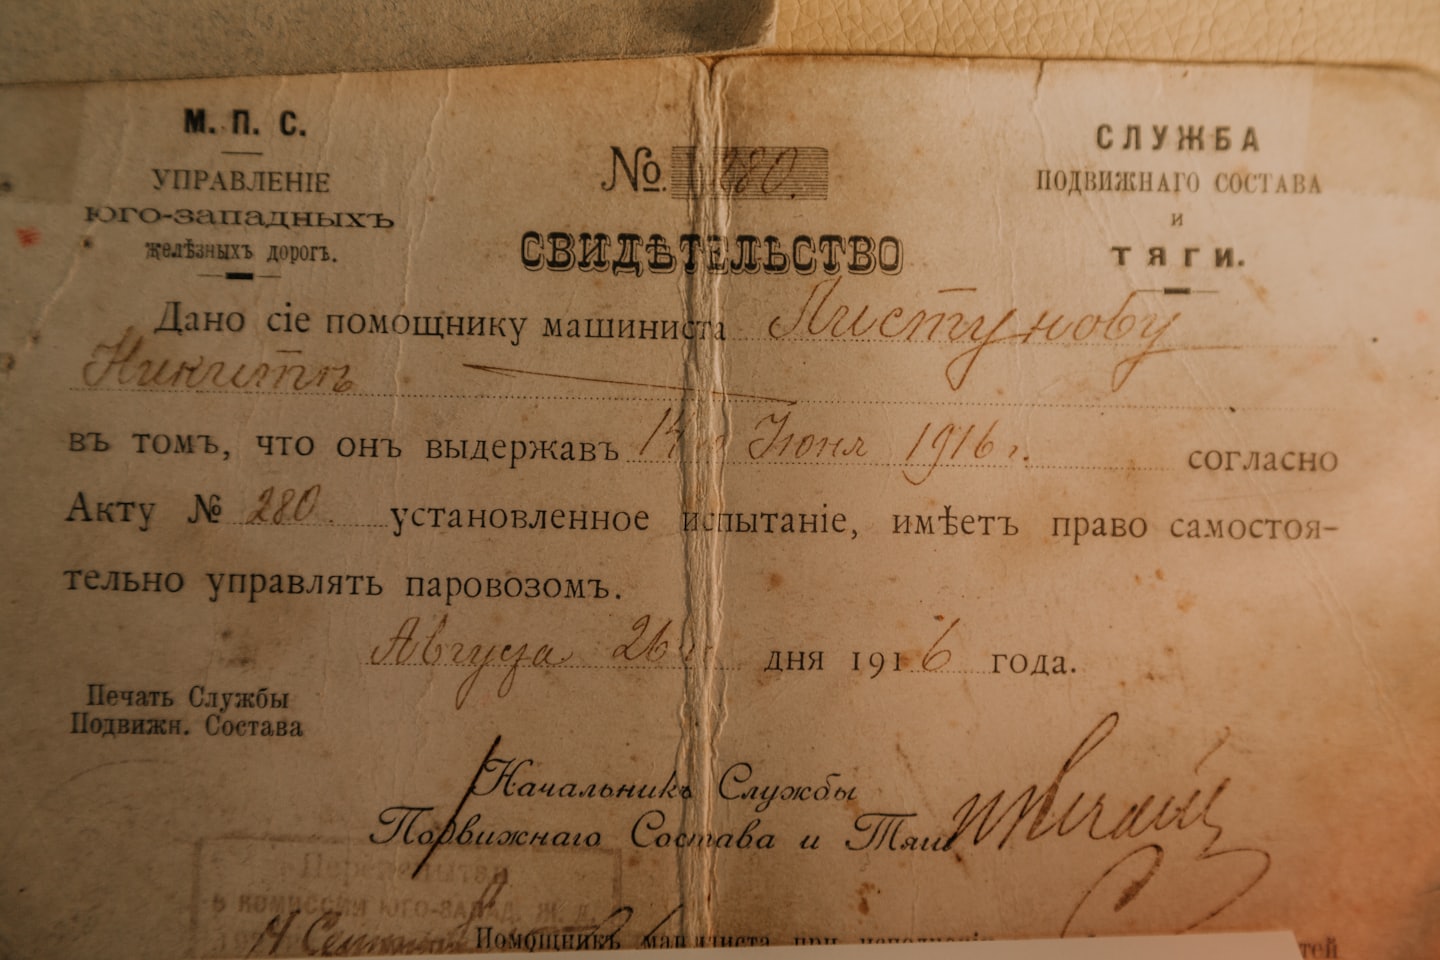 М. П. С.
УПРАВЛЕНІЕ
ЮГО-ЗАПАДНЫХЪ
желѣзныхъ дорогъ.
№ 280.
СВИДѢТЕЛЬСТВО
СЛУЖБА
ПОДВИЖНАГО СОСТАВА
И
ТЯГИ.
Дано сіе помощнику машиниста Листунову
Никитѣ
въ томъ, что онъ выдержавъ 14 Іюня 1916 г. согласно
Акту № 280. установленное испытаніе, имѣетъ право самостоя-
тельно управлять паровозомъ.
Августа 26 дня 1916 года.
Печать Службы
Подвижн. Состава
Начальникъ Службы
Подвижнаго Состава и Тяги
в комиссии ЮГО-ЗАПАД. Ж. Д.
Помощникъ машиниста при